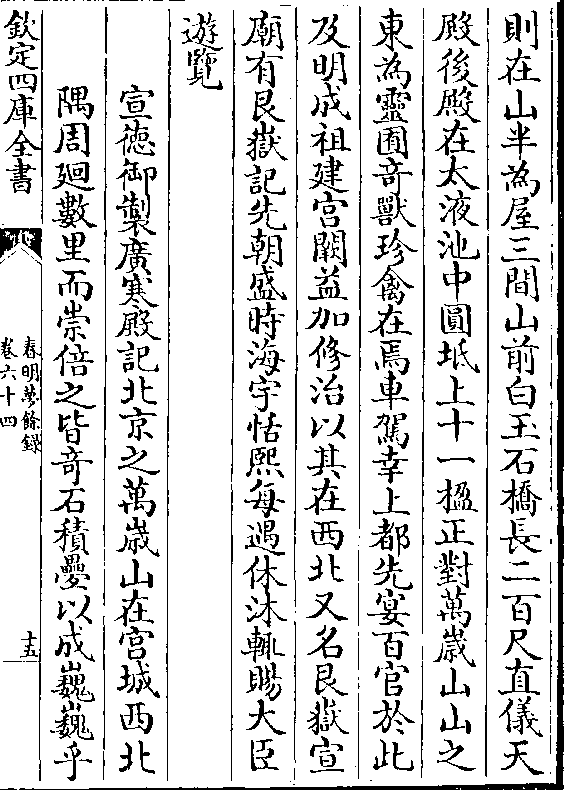 則在山半為屋三間山前白玉石橋長二百尺直儀天
殿後殿在太液池中圓坻上十一楹正對萬歲山山之
東為靈囿竒獸珍禽在焉車駕幸上都先宴百官於此
及明成祖建宮闕益加修治以其在西北又名艮嶽宣
廟有艮嶽記先朝盛時海宇恬熙每遇休沐輒賜大臣
遊覽
宣德御製廣寒殿記北京之萬歲山在宮城西北
隅周廻數里而崇倍之皆竒石積疊以成巍巍乎
欽定四庫全書
春明夢餘錄
卷六十四
十五